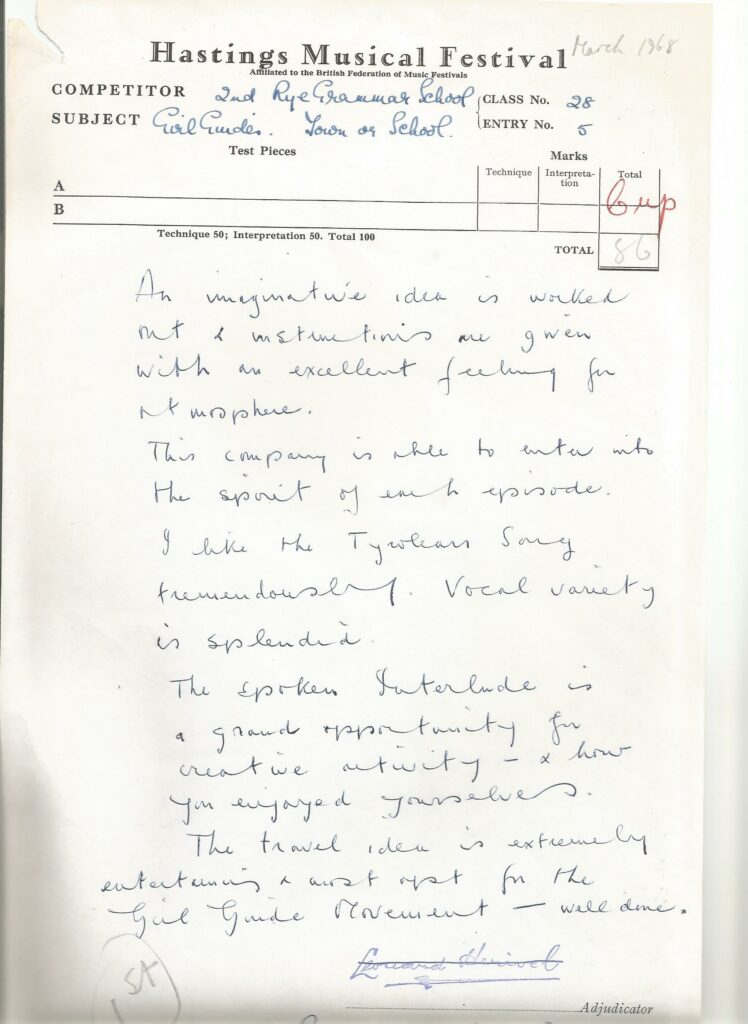 March 1968
Hastings Musical Festival
Affiliated to the British Federation of Music Festivals
COMPETITOR 2nd Rye Grammar School CLASS No. 28
SUBJECT Girl Guides. Town or School. ENTRY No. 5
Test Pieces Marks
Technique Interpreta-tion Total
A
B
Cup
Technique 50; Interpretation 50. Total 100
TOTAL 86
An imaginative idea is worked
out & instructions are given
with an excellent feeling for
atmosphere.
This company is able to enter into
the spirit of each episode.
I like the Tyrolean Song
tremendously. Vocal variety
is splendid.
The spoken Interlude is
a grand opportunity for
creative activity – & how
you enjoyed yourselves.
The travel idea is extremely
entertaining & most apt for the
Girl Guide Movement – well done.
1st
Leonard
Adjudicator